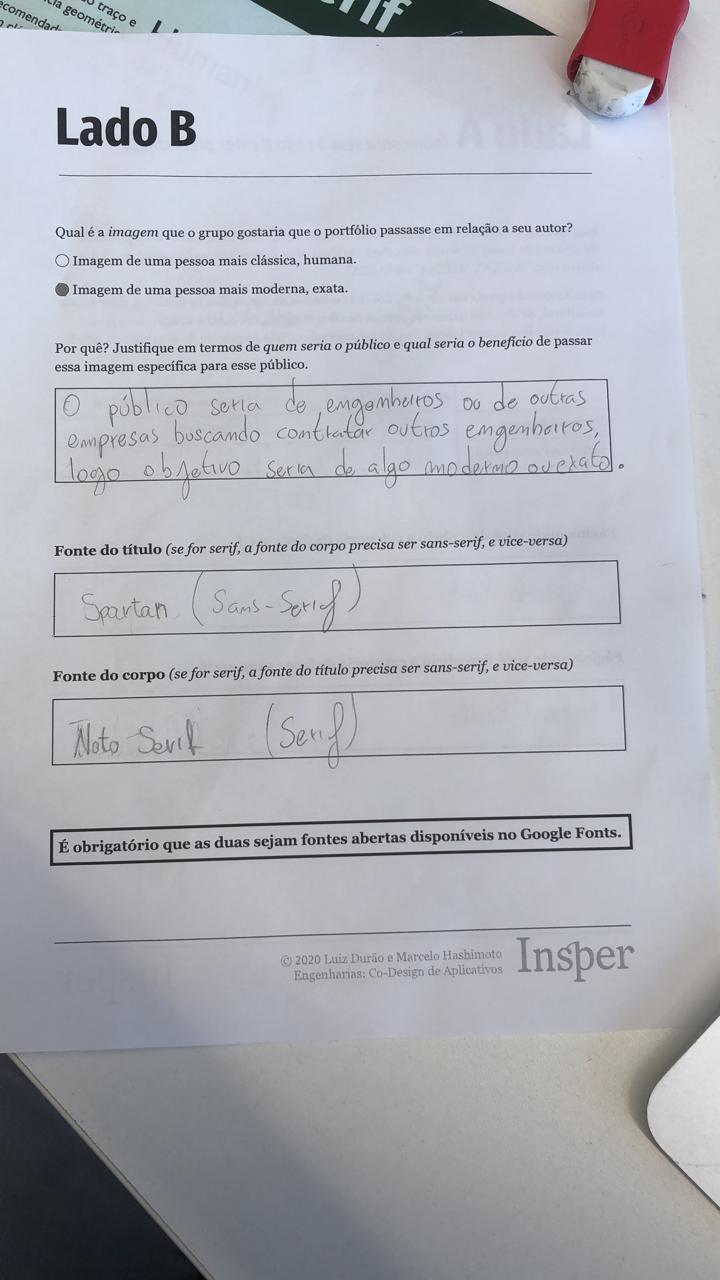 o traço e
cia geométri
comendad
rif
Lado B
Qual é a imagem que o grupo gostaria que o portfólio passasse em relação a seu autor?
Imagem de uma pessoa mais clássica, humana.
Imagem de uma pessoa mais moderna, exata.
Por quê? Justifique em termos de quem seria o público e qual seria o benefício de passar
essa imagem específica para esse público.
O público seria de engenheiros ou de outras
empresas buscando contratar outros engenheiros,
logo objetivo seria de algo moderno ou exato.
Fonte do título (se for serif, a fonte do corpo precisa ser sans-serif, e vice-versa)
Spartan (Sans-Serif)
Fonte do corpo (se for serif, a fonte do título precisa ser sans-serif, e vice-versa)
Noto Serif (Serif)
É obrigatório que as duas sejam fontes abertas disponíveis no Google Fonts.
© 2020 Luiz Durão e Marcelo Hashimoto
Engenharias: Co-Design de Aplicativos
Insper